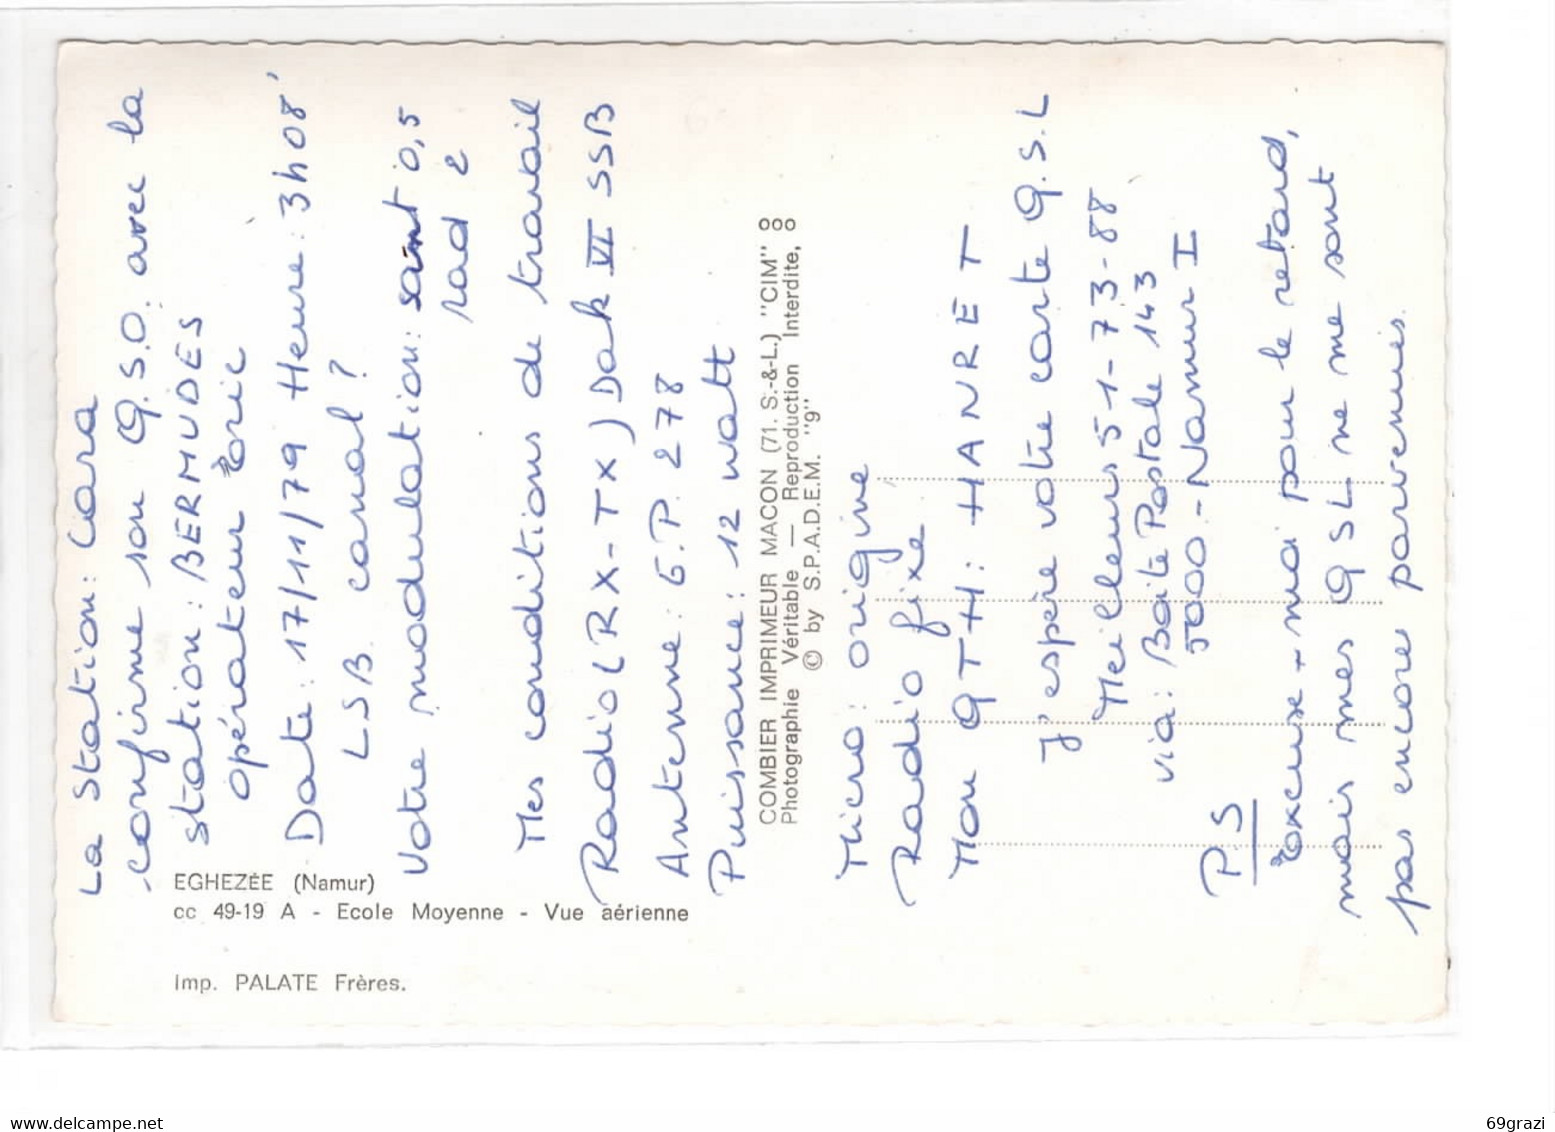 La Station: Ciara
confirme son Q.S.O. avec la
station: BERMUDES
opérateur Eric
Date: 17/11/79 Heure: 3h08'
LSB. canal?
Votre modulation: sant 0,5
rad 2
Mes conditions de travail
Radio (RX-TX) Dak VI SSB
Antenne: G.P. 278
Puissance: 12 watt
Micro: origine
Radio fixe
Mon QTH: HANRET
J'espère votre carte Q.S.L
Meilleurs 51-73-88
via: Boite Postale 143
5000-Namur I
P.S
Excuse-moi pour le retard,
mais mes QSL ne me sont
pas encore parvenues.
EGHEZÉE (Namur)
cc 49-19 A - Ecole Moyenne - Vue aérienne
Imp. PALATE Frères.
COMBIER IMPRIMEUR MACON (71. S.-&-L.) "CIM"
Photographie Véritable — Reproduction Interdite,
© by S.P.A.D.E.M. "9"
www.delcampe.net
69grazi